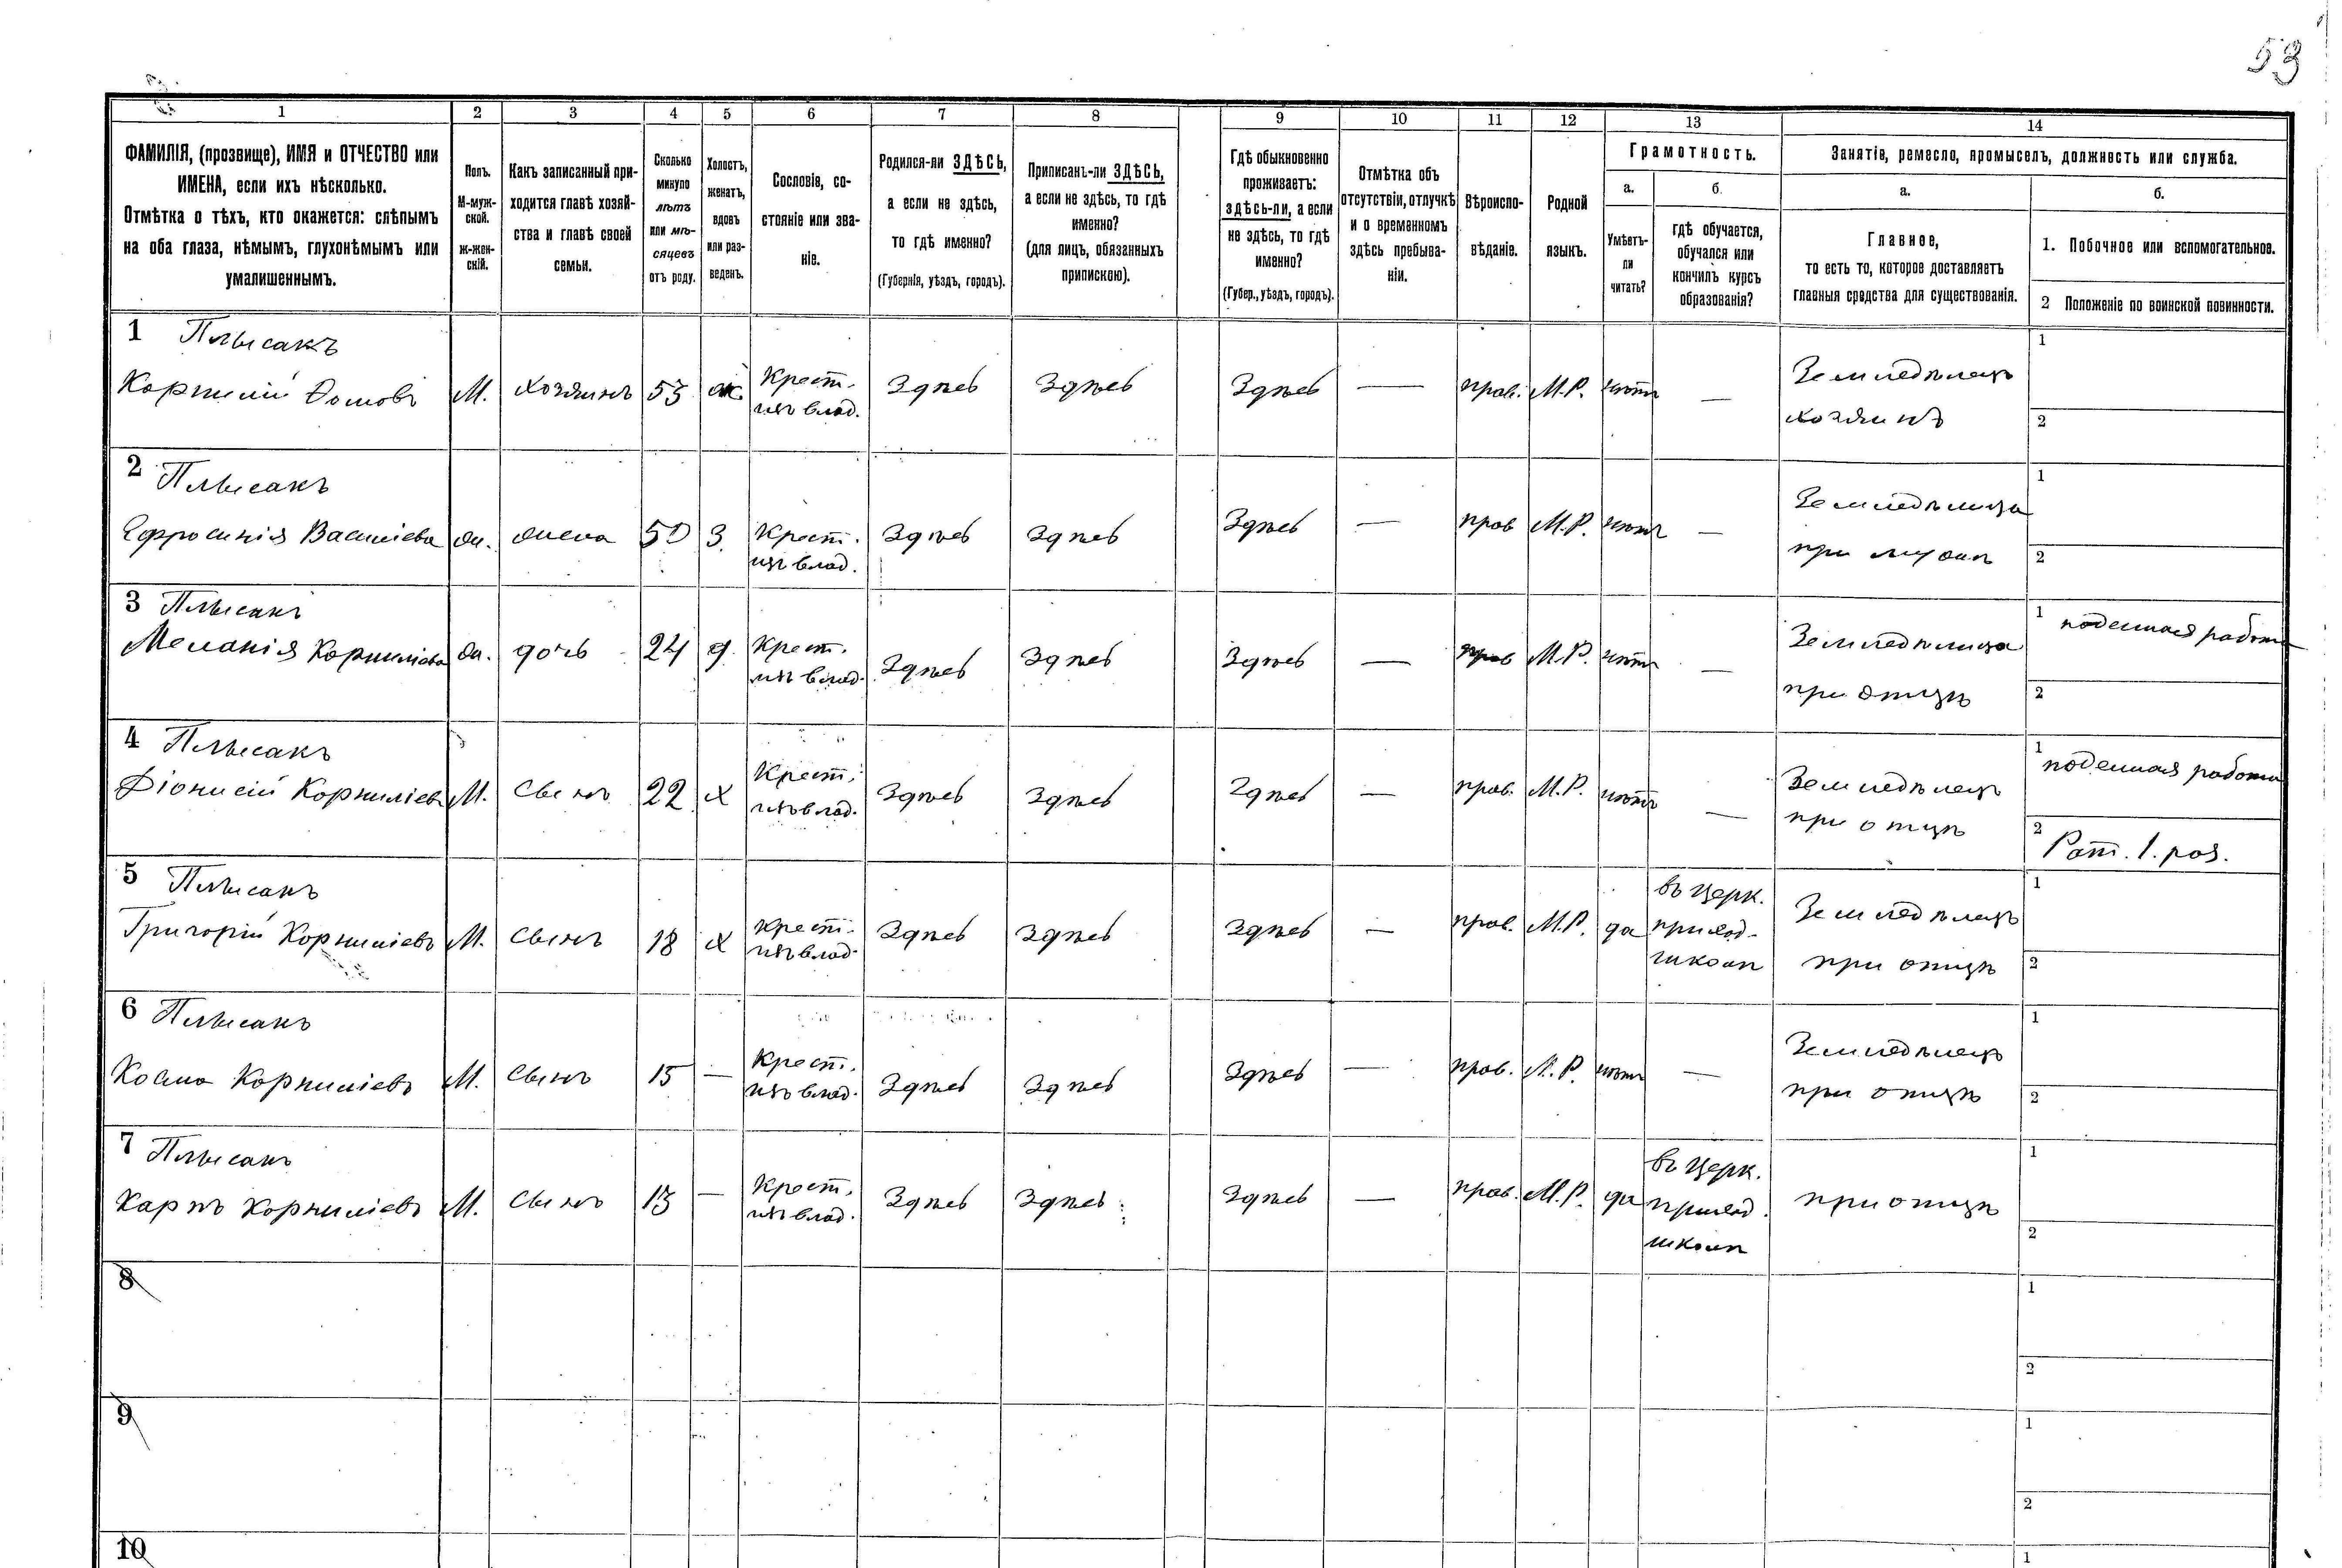 53
1 2 3 4 5 6 7 8 9 10 11 12 13 14
ФАМИЛІЯ, (прозвище), ИМЯ и ОТЧЕСТВО или
ИМЕНА, если ихъ нѣсколько.
Отмѣтка о тѣхъ, кто окажется: слѣпымъ
на оба глаза, нѣмымъ, глухонѣмымъ или
умалишеннымъ.
Полъ.
М-муж-
ской.
ж-жен-
скій.
Какъ записанный при-
ходится главѣ хозяй-
ства и главѣ своей
семьи.
Сколько
минуло
лѣтъ
или мѣ-
сяцевъ
отъ роду.
Холостъ,
женатъ,
вдовъ
или раз-
веденъ.
Сословіе, со-
стояніе или зва-
ніе.
Родился-ли ЗДѢСЬ,
а если не здѣсь,
то гдѣ именно?
(Губернія, уѣздъ, городъ).
Приписанъ-ли ЗДѢСЬ,
а если не здѣсь, то гдѣ
именно?
(для лицъ, обязанныхъ
припискою).
Гдѣ обыкновенно
проживаетъ:
здѣсь-ли, а если
не здѣсь, то гдѣ
именно?
(Губер., уѣздъ, городъ).
Отмѣтка объ
отсутствіи, отлучкѣ
и о временномъ
здѣсь пребыва-
ніи.
Вѣроиспо-
вѣданіе.
Родной
языкъ.
Грамотность.
а.
Умѣетъ-
ли
читать?
б.
гдѣ обучается,
обучался или
кончилъ курсъ
образованія?
Занятіе, ремесло, промыселъ, должность или служба.
а.
Главное,
то есть то, которое доставляетъ
главныя средства для существованія.
б.
1. Побочное или вспомогательное.
2 Положеніе по воинской повинности.
1 Плысакъ
Корнилій Фомовъ М. хозяинъ 53 ж. Крест. Здѣсь Здѣсь Здѣсь — прав. М.Р. нѣтъ — Земледѣлецъ 1
изъ влад. хозяинъ 2
2 Плысакъ
Ефросинія Василіева ж. жена 50 З. Крест. Здѣсь Здѣсь Здѣсь — прав М.Р. нѣтъ — Земледѣлица 1
изъ влад. при мужѣ 2
3 Плысакъ
Меланія Корниліева ж. дочь 24 д. Крест. Здѣсь Здѣсь Здѣсь — прав М.Р. нѣтъ — Земледѣлица 1 поденная работа
изъ влад. при отцѣ 2
4 Плысакъ
Діонисій Корниліевъ М. сынъ 22 х Крест. Здѣсь Здѣсь Здѣсь — прав. М.Р. нѣтъ — Земледѣлецъ 1 поденная работа
изъ влад. при отцѣ 2 Рат. 1. раз.
5 Плысакъ въ церк. 1
Григорій Корниліевъ М. сынъ 18 х Крест. Здѣсь Здѣсь Здѣсь — прав. М.Р. да приход. Земледѣлецъ
изъ влад. школѣ при отцѣ 2
6 Плысакъ
Косма Корниліевъ М. сынъ 15 — Крест. Здѣсь Здѣсь Здѣсь — прав. М.Р. нѣтъ — Земледѣлецъ 1
изъ влад. при отцѣ 2
7 Плысакъ въ церк. 1
Карпъ Корниліевъ М. сынъ 13 — Крест. Здѣсь Здѣсь Здѣсь — прав. М.Р. да приход. при отцѣ
изъ влад. школѣ 2
8 1
2
9 1
2
10 1